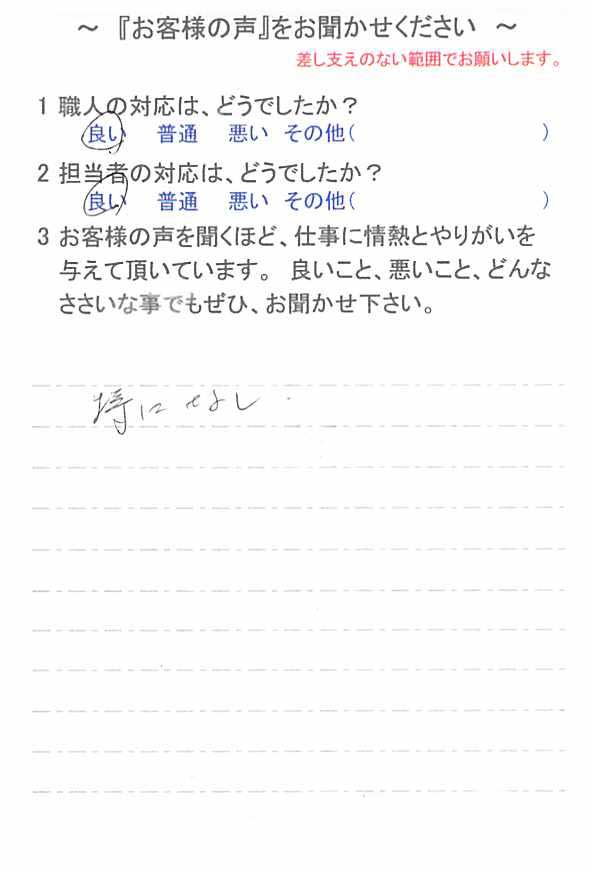 ～ 『お客様の声』をお聞かせください ～
差し支えのない範囲でお願いします。
1 職人の対応は、どうでしたか？
良い 普通 悪い その他( )
2 担当者の対応は、どうでしたか？
良い 普通 悪い その他( )
3 お客様の声を聞くほど、仕事に情熱とやりがいを
与えて頂いています。 良いこと、悪いこと、どんな
ささいな事でもぜひ、お聞かせ下さい。
特になし.